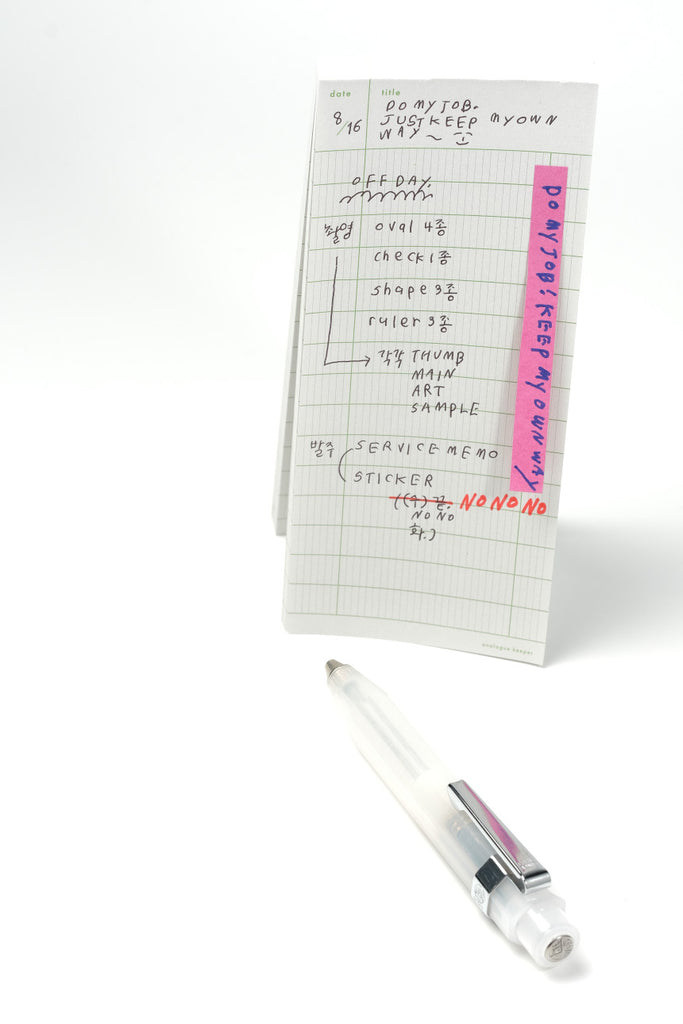 date title
8/16
DO MY JOB.
JUST KEEP MY OWN
WAY ~
OFF DAY.
촬영 oval 4종
check 1종
shape 3종
ruler 3종
각각 THUMB
MAIN
ART
SAMPLE
발주 SERVICE MEMO
STICKER
((수) 끝. NO NO NO
NO NO
화.)
DO MY JOB! KEEP MY OWN WAY
analogue keeper